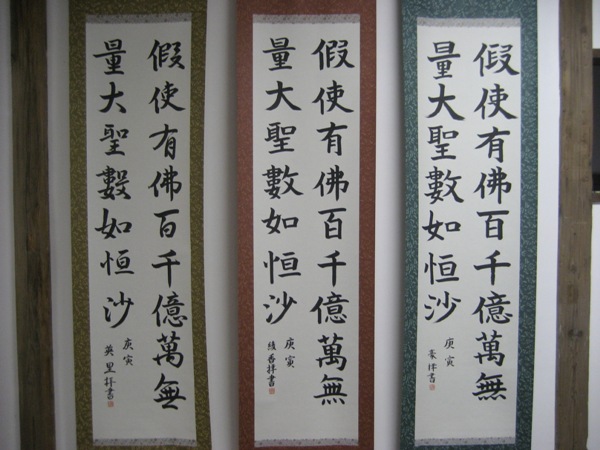 假使有佛百千億萬無
量大聖數如恒沙
庚寅
豪拝書
假使有佛百千億萬無
量大聖數如恒沙
庚寅
綾香拝書
假使有佛百千億萬無
量大聖數如恒沙
庚寅
英里拝書